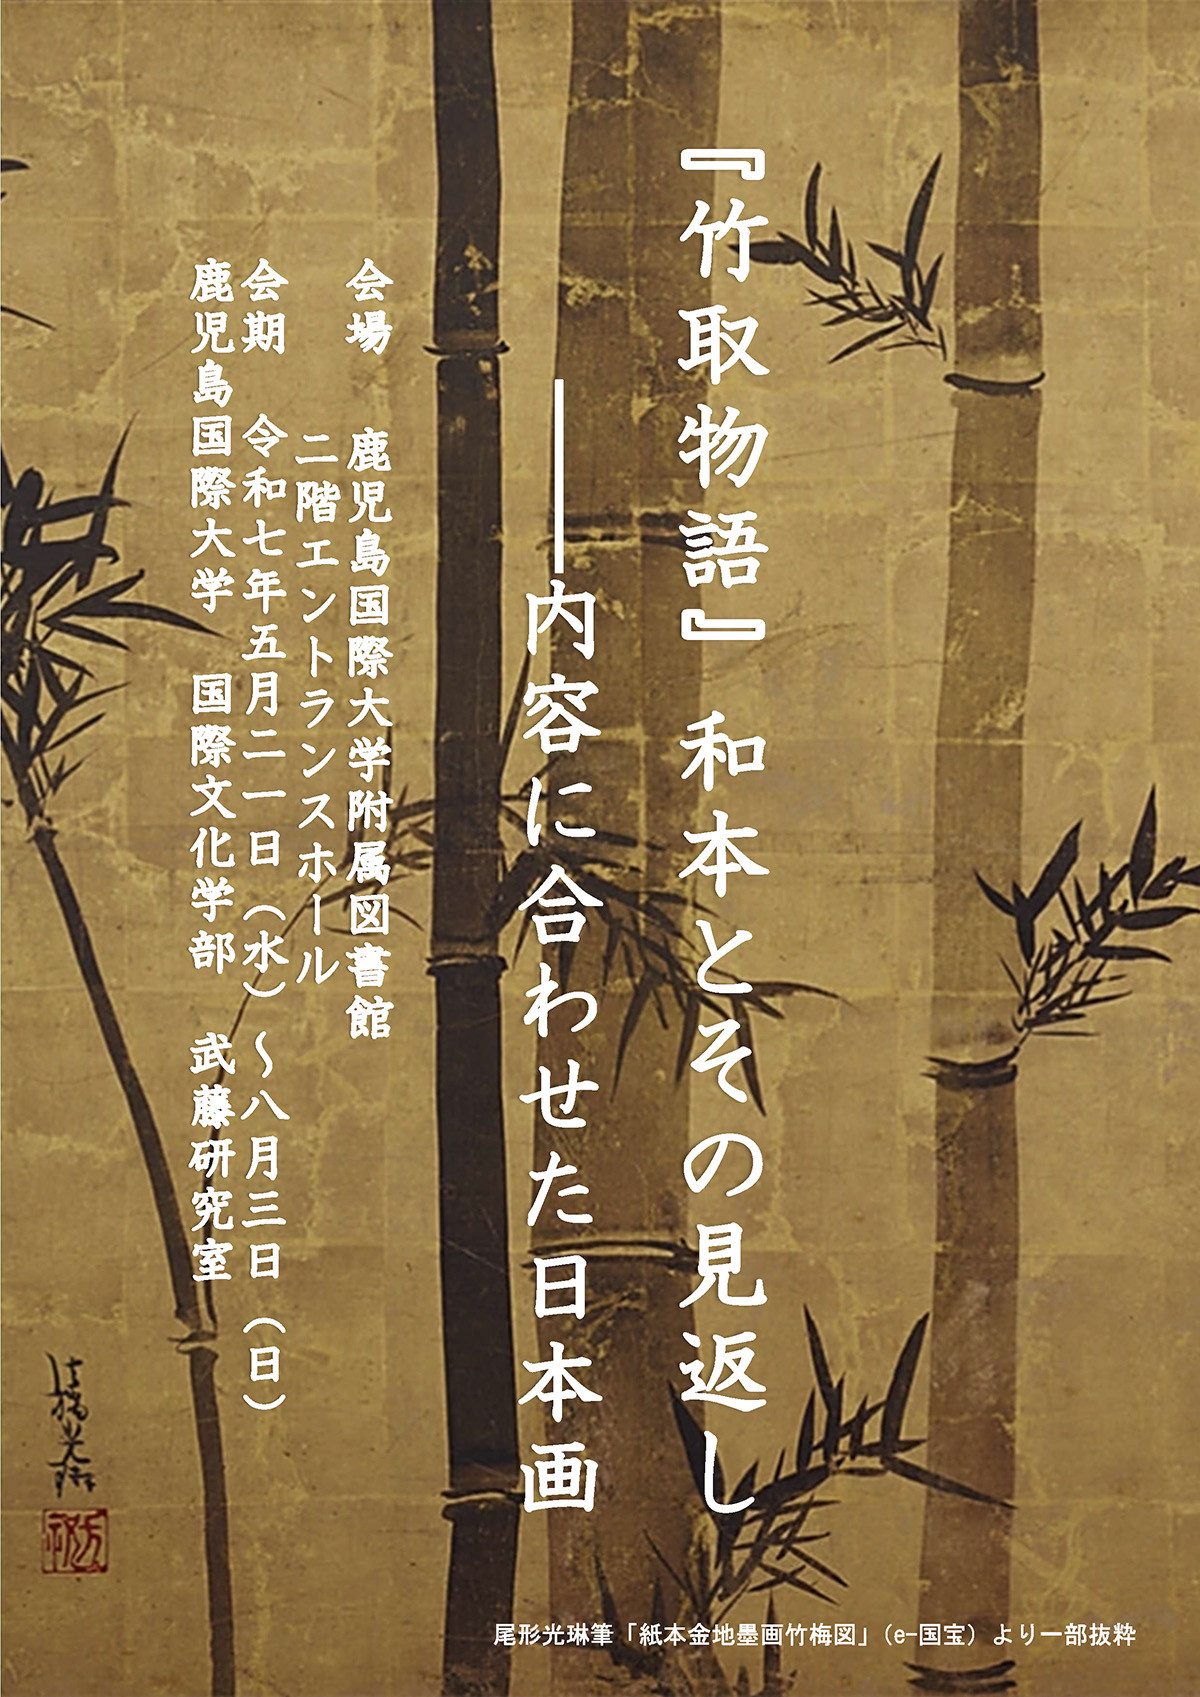 『竹取物語』 和本とその見返し
――内容に合わせた日本画
会場 鹿児島国際大学附属図書館
二階エントランスホール
会期 令和七年五月二一日（水）～八月三日（日）
鹿児島国際大学 国際文化学部 武藤研究室
尾形光琳筆「紙本金地墨画竹梅図」（e-国宝）より一部抜粋